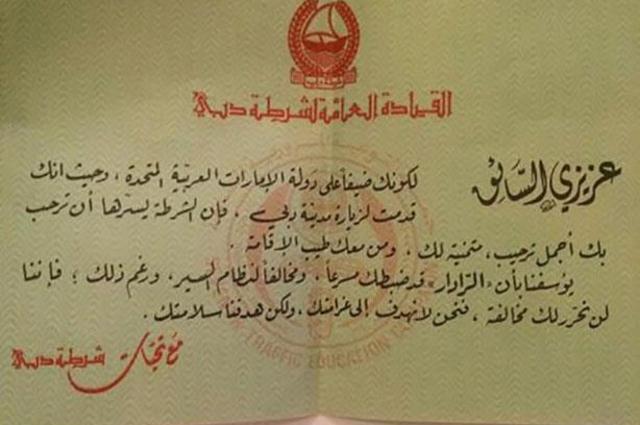 القيادة العامة لشرطة دبي
عزيزي السائق
لكونك ضيفاً على دولة الإمارات العربية المتحدة ، وحيث انك
قدمت لزيارة مدينة دبي ، فإن الشرطة يسرّها أن ترحب
بك أجمل ترحيب، متمنية لك ، ومن معك طيب الإقامة .
يؤسفنا بأن «الرادار» قد ضبطك مسرعاً ، ومخالفاً لنظام السير، ورغم ذلك ؛ فإننا
لن نحرر لك مخالفة ، فنحن لا نهدف إلى غرامتك ، ولكن هدفنا سلامتك .
مع تحيات شرطة دبي
TRAFFIC EDUCATION